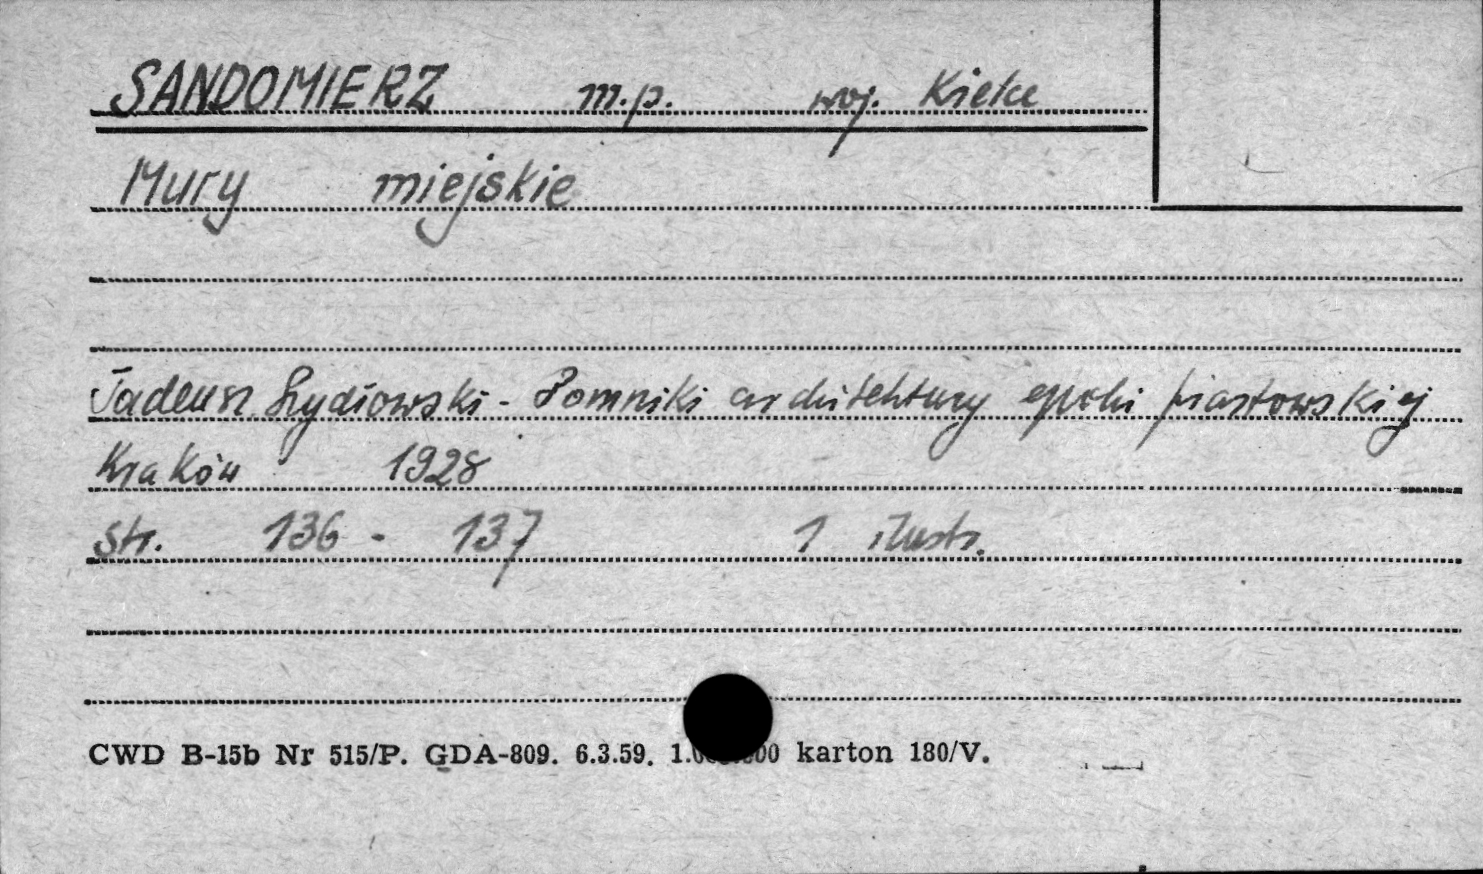 SANDOMIERZ m.p. woj. Kielce
Mury miejskie
Tadeusz Szydłowski - Pomniki architektury epoki piastowskiej
Kraków 1928
str. 136 - 137 1 ilustr.
CWD B-15b Nr 515/P. GDA-809. 6.3.59. karton 180/V.